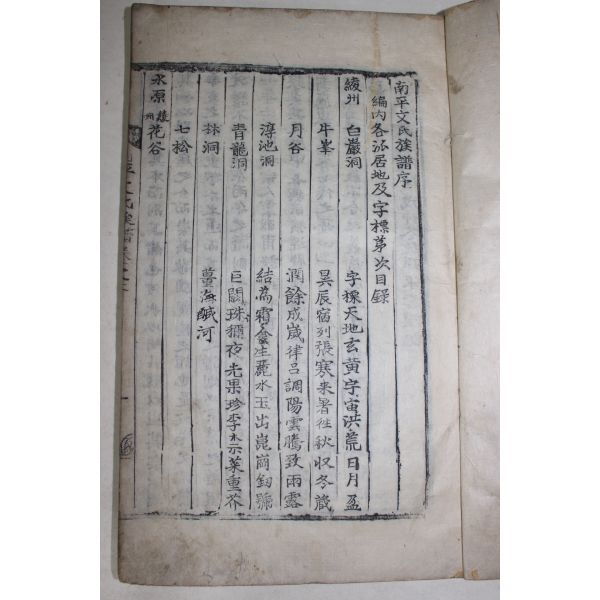 南平文氏族譜序
編內各派居地及字標第次目錄
綾州 白巖洞 字標天地玄黃字宙洪荒日月盈
牛峯 昃辰宿列張寒來暑往秋収冬藏
月谷 潤餘成歲律呂調陽雲騰致雨露
淳池洞 結爲霜金生麗水玉出崑崗釼號
青龍洞 巨闕珠稱夜光果珍李柰菜重芥
林洞 薑海鹹河
七松
花谷